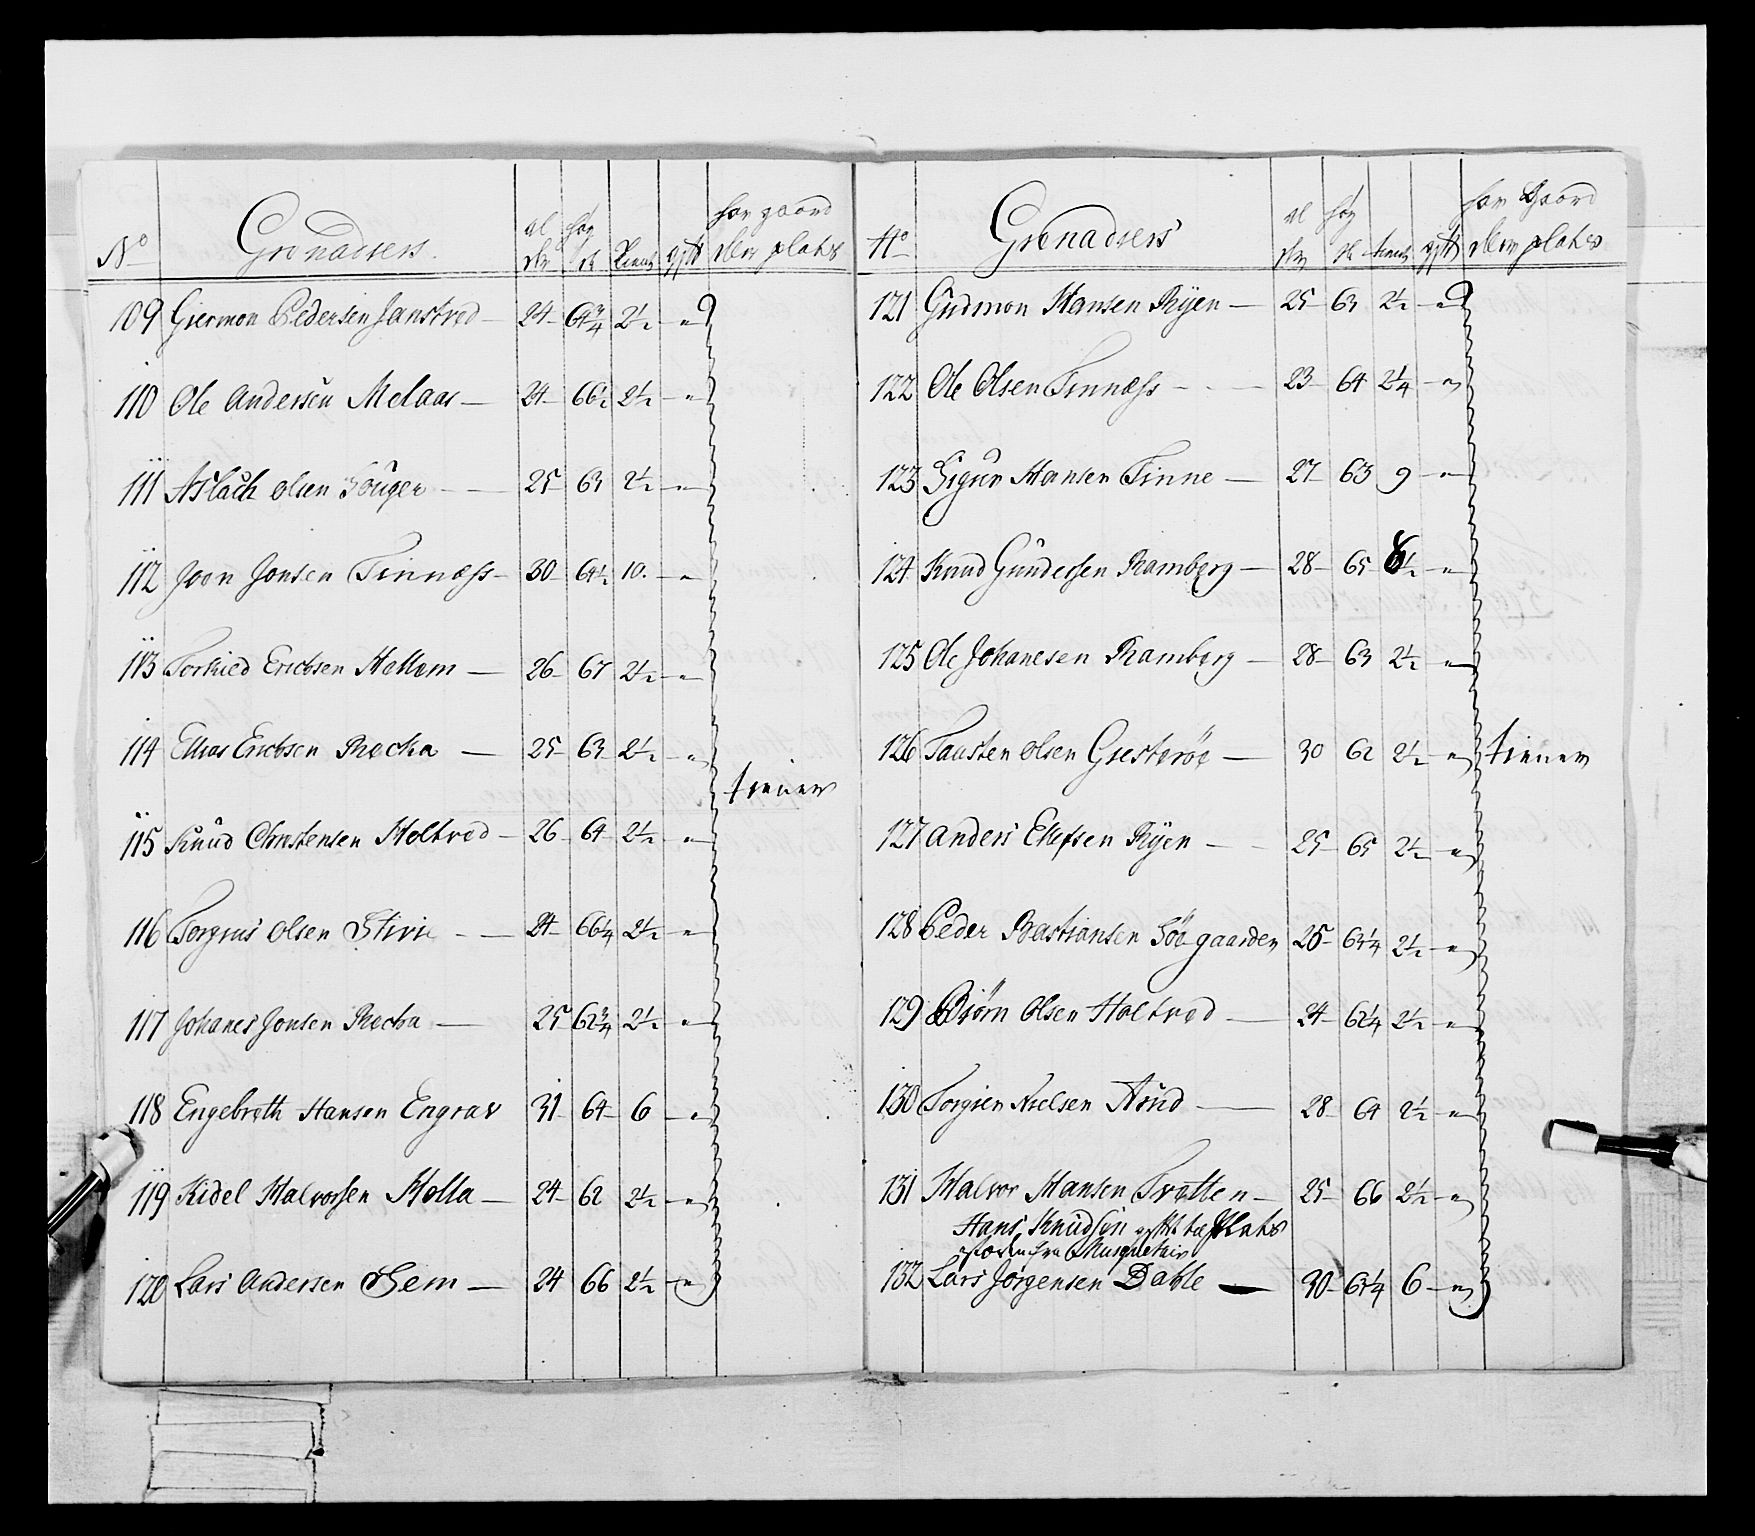 No Grenadeers. al der høy de tienst gift har gaard eller plads
109 Giermon Pedersen 24 64 3/4 2 1/2 "
110 Ole Andersen Melaas 24 66 1/2 2 1/2 "
111 Aslach Olsen 25 63 2 1/2 "
112 Joen Jonsen Finnæss 30 64 1/2 10. "
113 Torkild Erichsen Hellem 26 67 2 1/2 "
114 Elias Erichsen Recka 25 63 2 1/2 "
tiener
115 Knud Christensen Holtved 26 64 2 1/2 "
116 Olsen 24 66 1/4 2 1/2 "
117 Johanes Jonsen Recka 25 62 3/4 2 1/2 "
118 Engebreth Hansen Engrav 31 64 6 "
119 Kidel Halvorsen Holla 24 62 2 1/2 "
120 Lars Andersen Sem 24 66 2 1/2 "
No Grenadeers al der høy de tienst gift har Gaard eller plads
121 Gudmon Hansen Ryen 25 63 2 1/2 "
122 Ole Olsen Finnæss 23 64 2 1/4 "
123 Sigur Hansen Finne 27 63 9 "
124 Knud Gundersen Ramberg 28 65 "
125 Ole Johanesen Ramberg 28 63 2 1/2 "
126 Tausten Olsen 30 62 2 1/2 " tiener
127 Anders Ellefsen Ryen 25 65 2 1/2 "
128 Peder Bastiansen Söegaarden 25 63 1/4 2 1/2 "
129 Biörn Olsen Holtved 24 62 1/4 2 1/2 "
130 Nielsen 28 64 2 1/2 "
131 Halvor Hansen Tvetten 25 66 2 1/2 "
Hans Knudsen
fra Musqueteir
132 Lars Jörgensen Dahle 30 6 "